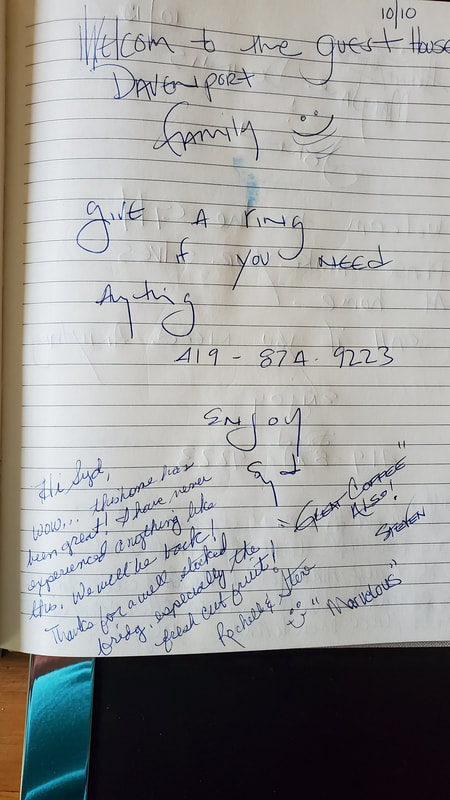 10/10
Welcom to the guest House
Davenport
family
give a ring
if you need
Anyting
419 - 874. 9223
Enjoy
Syd
Hi Syd,
Wow... this home has
been great! I have never
experienced anything like
this. We will be back!
Thanks for a well stocked
bridg, especially the
fresh cut fruit!
Rochelle & Steve
"Great Coffee
Also!"
Steven
"Marvolous"